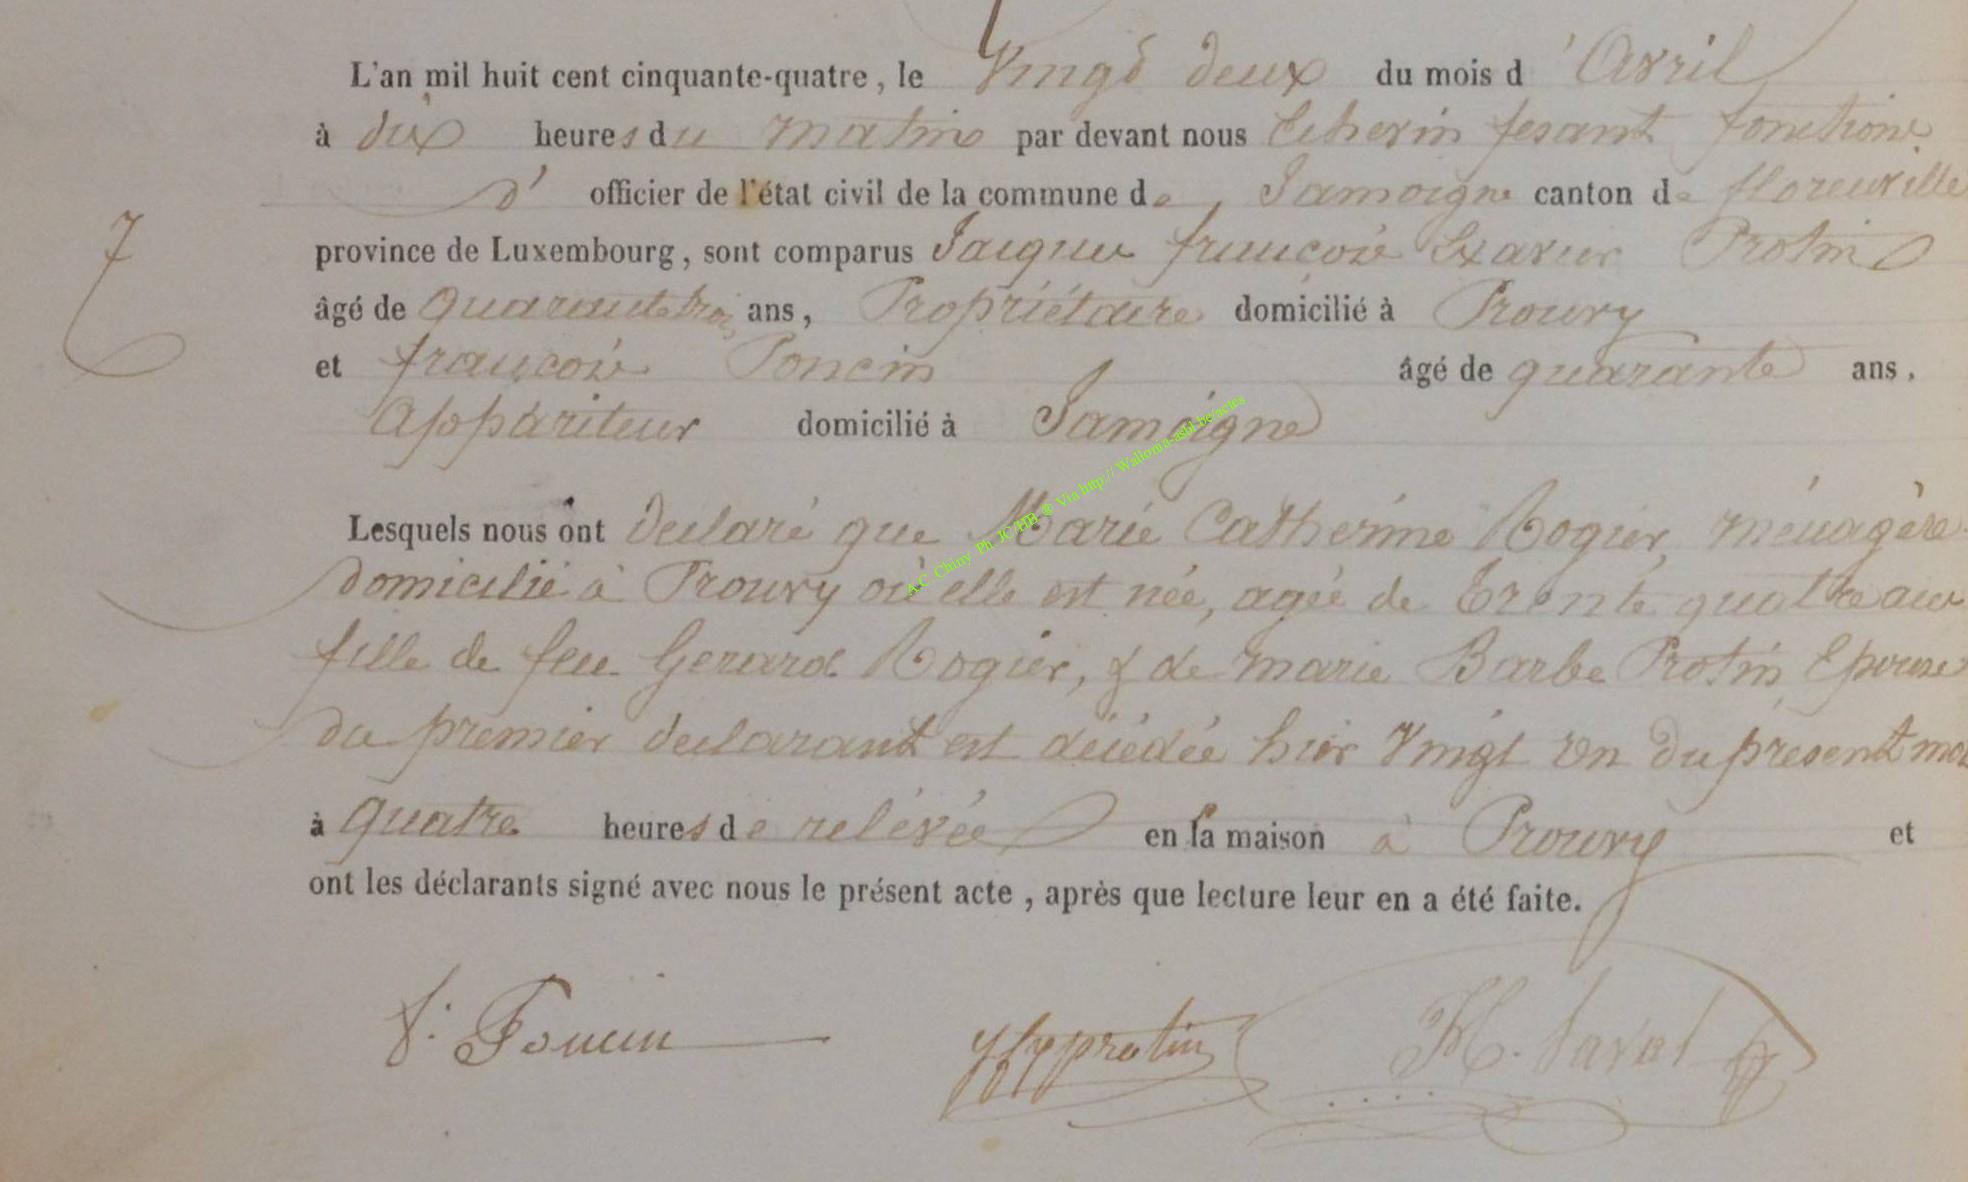 L'an mil huit cent cinquante-quatre, le Vingt deux du mois d'Avril
à dix heures du matin par devant nous Echevin fesant fonctions
7
d' officier de l'état civil de la commune de Jamoigne canton de florenville
province de Luxembourg, sont comparus Jacques françois Exavier Protin
âgé de Quarante trois ans, Propriétaire domicilié à Prouvy
et françois Poncin âgé de quarante ans,
Appariteur domicilié à Jamoigne
A.C. Chiny Ph JC/HB ® Via http:// Wallonia-asbl.be/actes
Lesquels nous ont déclaré que Marie Catherine Rogier, ménagère
domicilié à Prouvy où elle est née, agée de trente quatre ans
fille de feu Gerard Rogier, & de marie Barbe Protin Epouse
du premier declarant est décédée hier Vingt un du présent mois
à quatre heures de relévée en sa maison à Prouvy et
ont les déclarants signé avec nous le présent acte, après que lecture leur en a été faite.
f: Poncin jfxprotin H. Laval